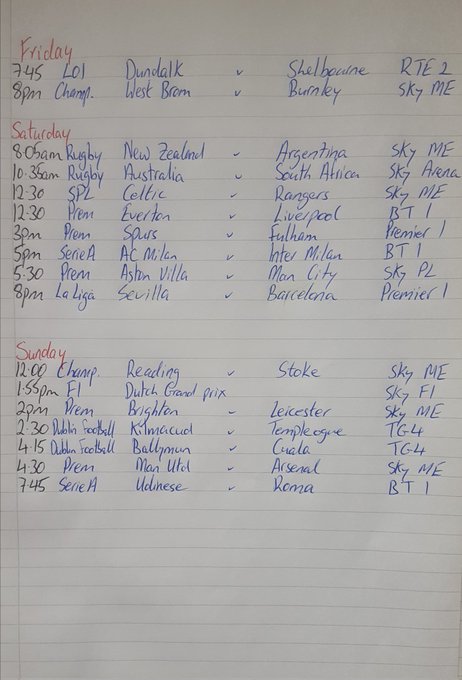 Friday
7.45 LOI Dundalk v Shelbourne RTE 2
8pm Champ. West Brom v Burnley Sky ME
Saturday
8:05am Rugby New Zealand v Argentina Sky ME
10.35am Rugby Australia v South Africa Sky Arena
12:30 SPL Celtic v Rangers Sky ME
12:30 Prem Everton v Liverpool BT 1
3pm Prem Spurs v Fulham Premier 1
5pm Serie A AC Milan v Inter Milan BT 1
5.30 Prem Aston Villa v Man City Sky PL
8pm La Liga Sevilla v Barcelona Premier 1
Sunday
12:00 Champ. Reading v Stoke Sky ME
1:55pm F1 Dutch Grand prix Sky F1
2pm Prem Brighton v Leicester Sky ME
2:30 Dublin Football Kilmacud v Templeogue TG4
4:15 Dublin Football Ballymun v Cuala TG4
4:30 Prem Man Utd v Arsenal Sky ME
7.45 Serie A Udinese v Roma BT 1